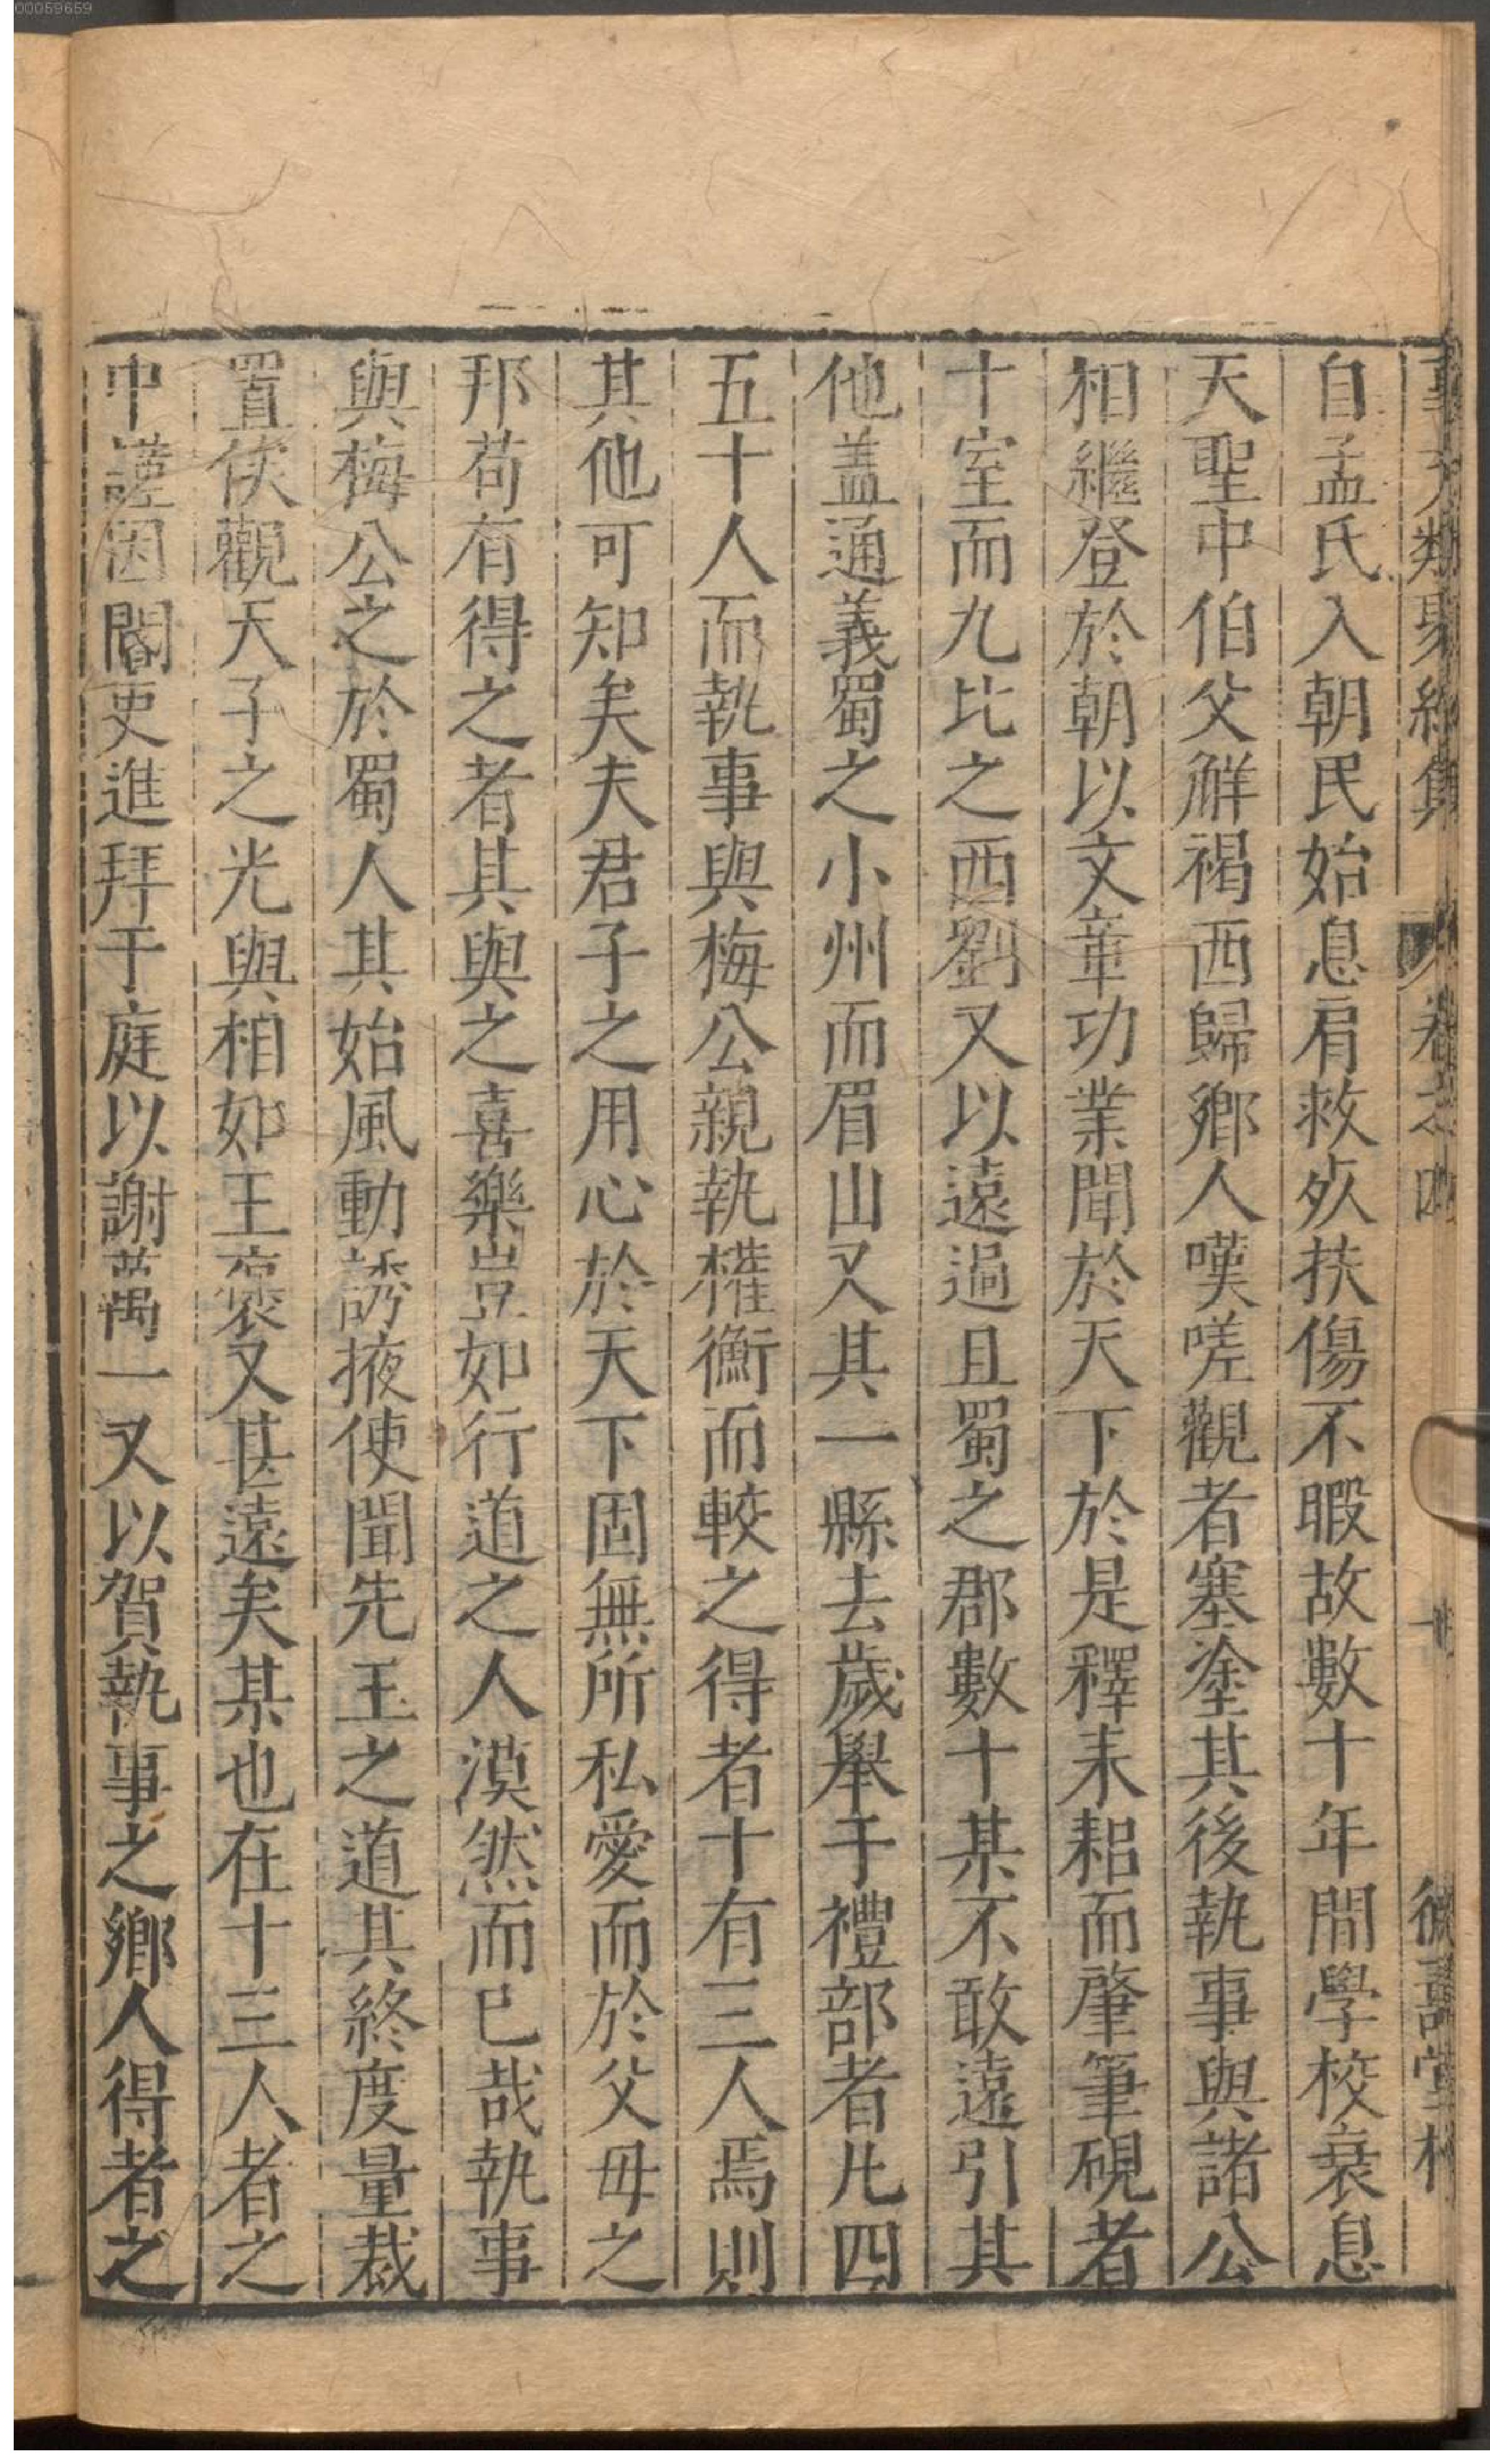 00059659
事文類聚　卷之四
自孟氏入朝民始息肩救死扶傷不暇故數十年間學校衰息
天聖中伯父解褐西歸鄉人嘆嗟觀者塞塗其後執事與諸公
相繼登於朝以文章功業聞於天下於是釋耒耜而肇筆硯者
十室而九比之西劉又以遠過且蜀之郡數十某不敢遠引其
他盖通義蜀之小州而眉山又其一縣去歲舉于禮部者凡四
五十人而執事與梅公親執權衡而較之得者十有三人焉則
其他可知矣夫君子之用心於天下固無所私愛而於父母之
邦苟有得之者其與之喜樂豈如行道之人漠然而已哉執事
與梅公之於蜀人其始風動誘掖使聞先王之道其終度量裁
置俟觀天子之光與相如王褒又甚遠矣某也在十三人者之
中謹因閽吏進拜于庭以謝萬一又以賀執事之鄉人得者之